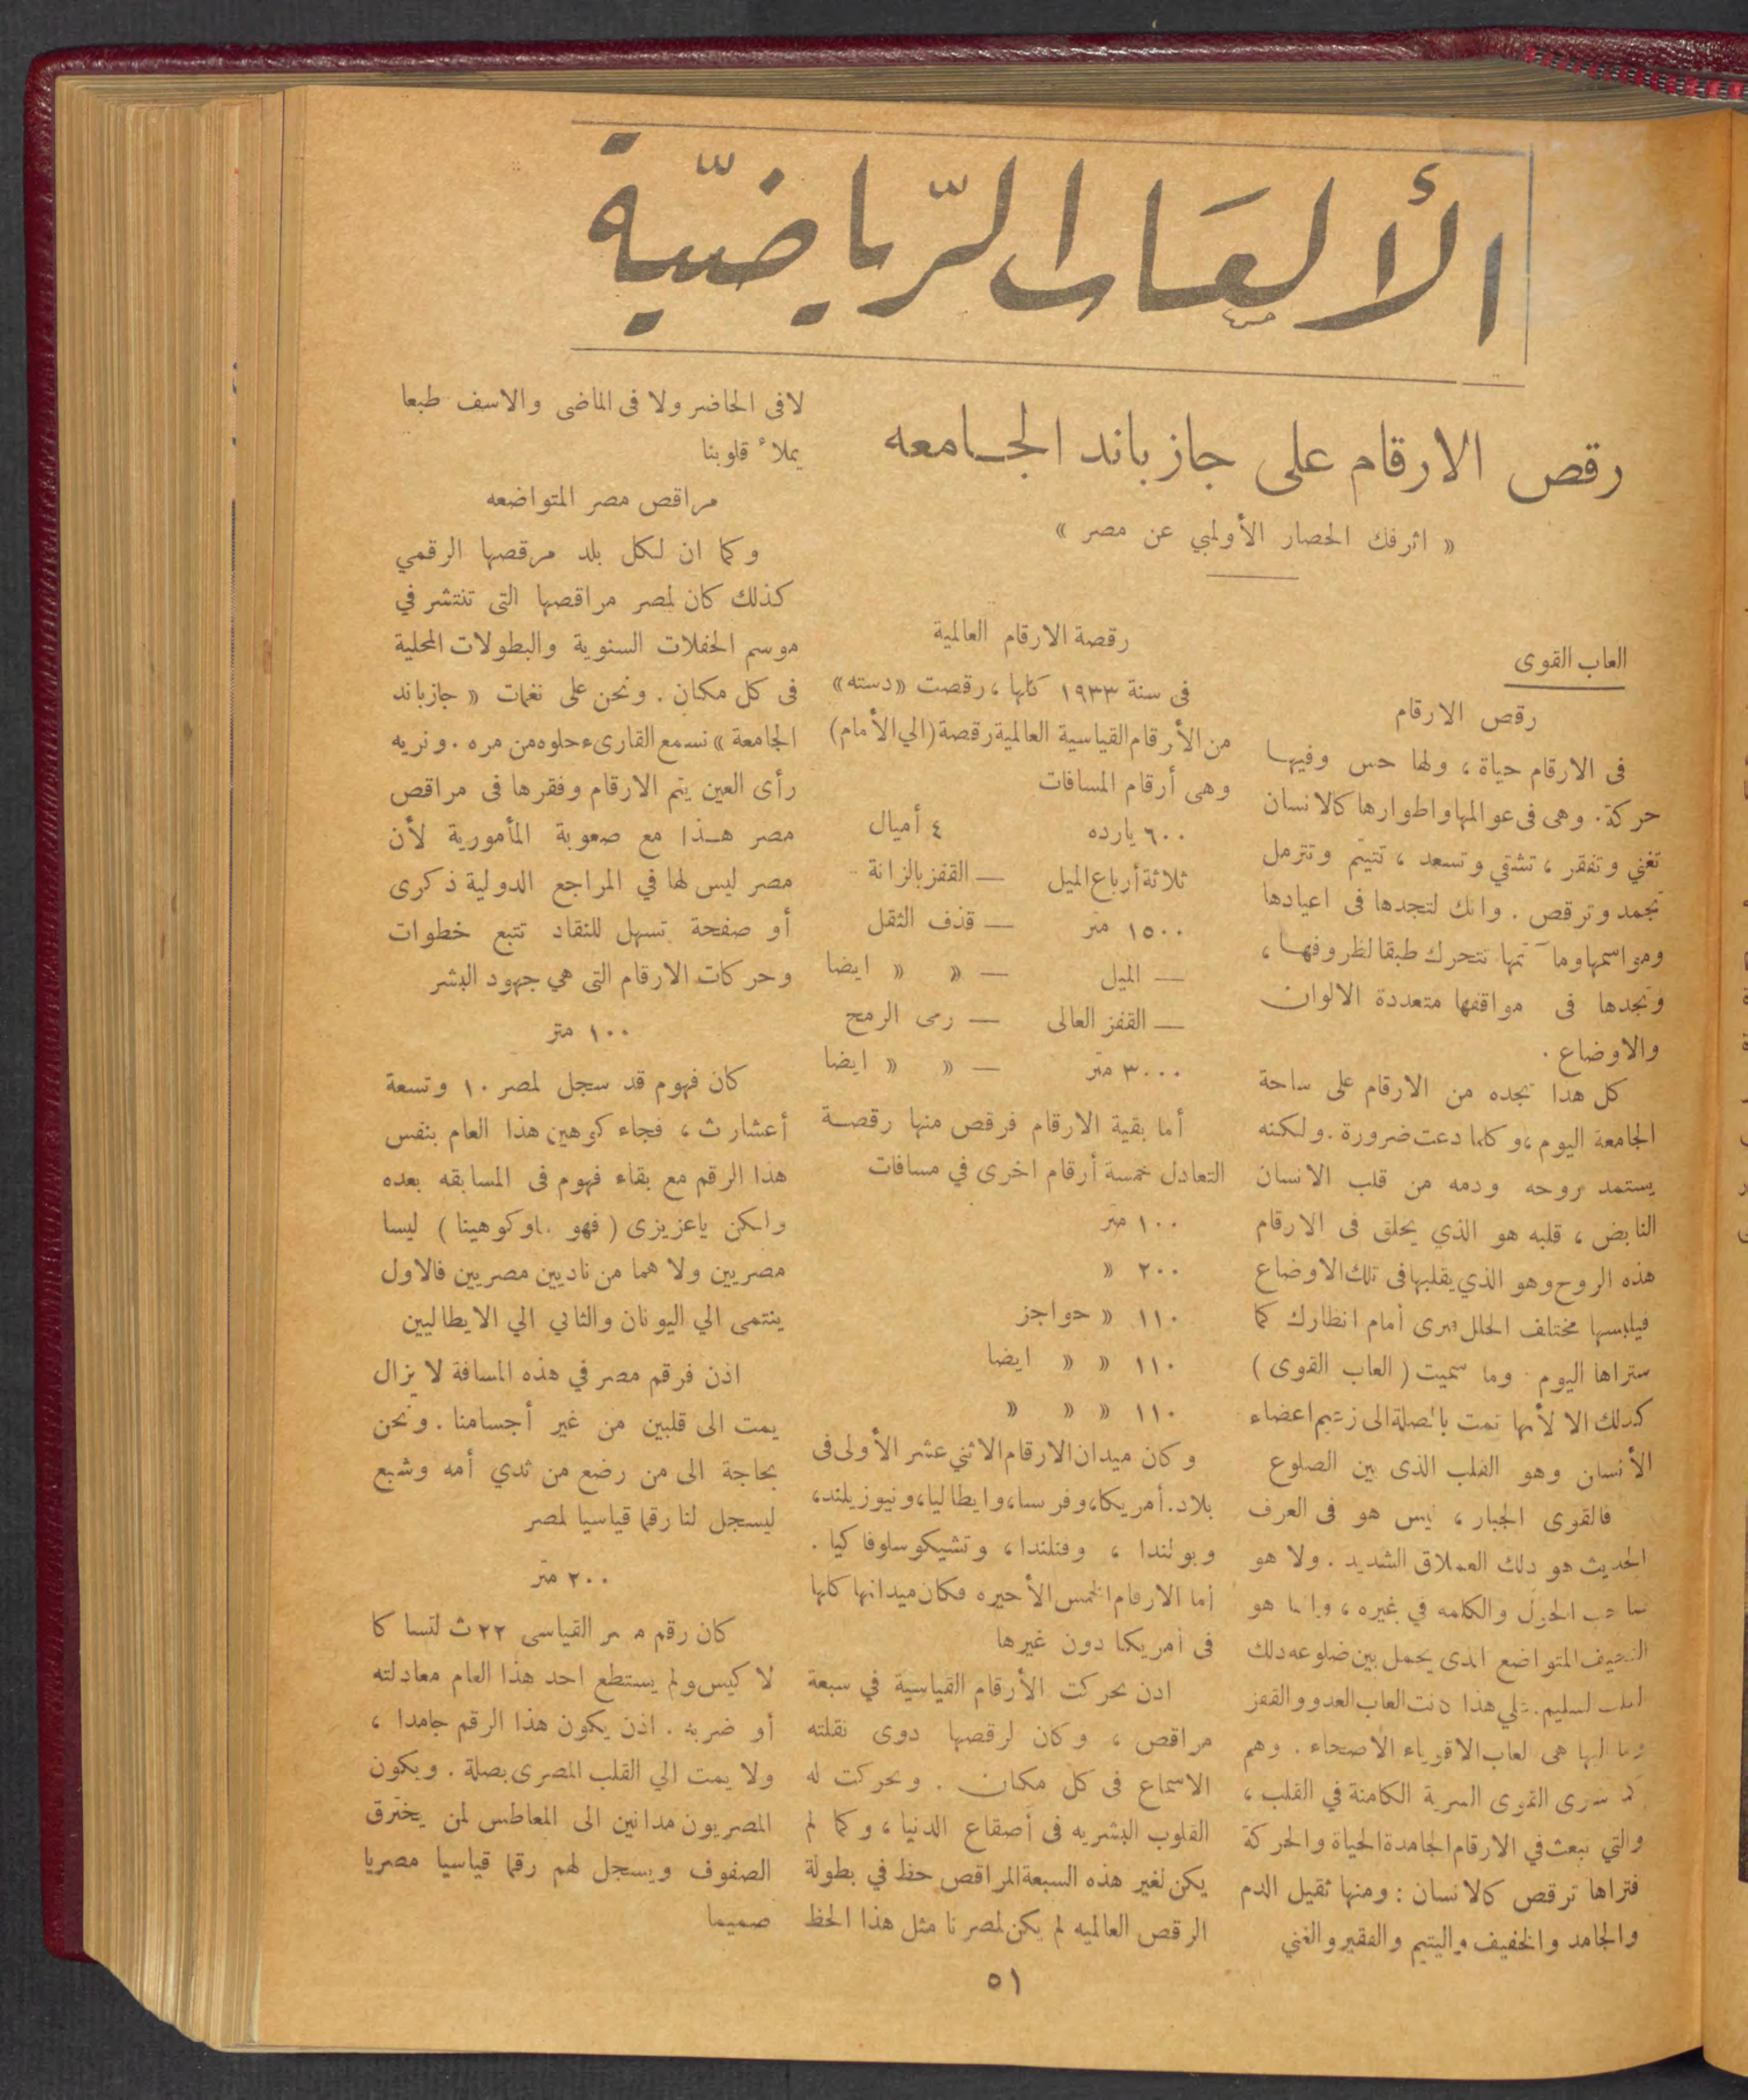 الألعاب الرياضية
رقص الارقام على جازباند الجامعه
« اثرفك الحصار الأولمبي عن مصر »
العاب القوى
رقص الارقام
فى الارقام حياة ، ولها حس وفيها
حركة. وهى فى عوالمها واطوارها كالانسان
تغني وتفقر ، تشقي وتسعد ، تتيتم وتترمل
تجمد وترقص . وانك لتجدها فى اعيادها
ومواسمها ومآتمها تتحرك طبقا لظروفها ،
وتجدها فى مواقفها متعددة الالوان
والاوضاع .
كل هذا تجده من الارقام على ساحة
الجامعة اليوم ، وكلما دعت ضرورة . ولكنه
يستمد روحه ودمه من قلب الانسان
النابض ، قلبه هو الذي يخلق فى الارقام
هذه الروح وهو الذي يقلبها فى تلك الاوضاع
فيلبسها مختلف الحلل فترى أمام انظارك كما
ستراها اليوم . وما سميت ( العاب القوى )
كذلك الا لأنها تمت بالصلة الى زعيم اعضاء
الأنسان وهو القلب الذى بين الضلوع
فالقوى الجبار ، ليس هو فى العرف
الحديث هو ذلك العملاق الشديد . ولا هو
صاحب الحول والكلمه في غيره ، وانما هو
النحيف المتواضع الذى يحمل بين ضلوعه ذلك
القلب السليم . فلي هذا كانت العاب العدو والقفز
وما اليها هى العاب الاقوياء الأصحاء . وهم
القوى السرية الكامنة في القلب ،
والتي تبعث في الارقام الجامدة الحياة والحركة
فتراها ترقص كالانسان : ومنها ثقيل الدم
والجامد والخفيف واليتيم والفقير والغني
رقصة الارقام العالمية
فى سنة ١٩٣٣ كلها ، رقصت «دسته»
من الأرقام القياسية العالمية رقصة (الي الأمام)
وهى أرقام المسافات
٦٠٠ يارده ٤ أميال
ثلاثة أرباع الميل — القفز بالزانة
١٥٠٠ متر — قذف الثقل
— الميل — « « ايضا
— القفز العالى — رمى الرمح
٣٠٠٠ متر — « « ايضا
أما بقية الارقام فرقص منها رقصة
التعادل خمسة أرقام اخرى في مسافات
١٠٠ متر
٢٠٠ «
١١٠ « حواجز
١١٠ « « ايضا
١١٠ « « «
وكان ميدان الارقام الاثني عشر الأولى فى
بلاد. أمريكا، وفرنسا، وايطاليا، ونيوزيلند،
وبولندا ، وفنلندا ، وتشيكوسلوفاكيا .
أما الارقام الخمس الأخيره فكان ميدانها كلها
فى أمريكا دون غيرها
اذن تحركت الأرقام القياسية في سبعة
مراقص ، وكان لرقصها دوى نقلته
الاسماع فى كل مكان . وتحركت له
القلوب البشريه فى أصقاع الدنيا ، وكما لم
يكن لغير هذه السبعة المراقص حظ في بطولة
الرقص العالميه لم يكن لمصرنا مثل هذا الحظ
لافى الحاضر ولا فى الماضى والاسف طبعا
يملأ قلوبنا
مراقص مصر المتواضعه
وكما ان لكل بلد مرقصها الرقمي
كذلك كان لمصر مراقصها التى تنتشر في
موسم الحفلات السنوية والبطولات المحلية
فى كل مكان . ونحن على نغمات « جازباند
الجامعة » نسمع القارىء حلوه من مره . ونريه
رأى العين يتم الارقام وفقرها فى مراقص
مصر هذا مع صعوبة المأمورية لأن
مصر ليس لها في المراجع الدولية ذكرى
أو صفحة تسهل للنقاد تتبع خطوات
وحركات الارقام التى هي جهود البشر
١٠٠ متر
كان فهوم قد سجل لمصر ١٠ وتسعة
أعشار ث ، فجاء كوهين هذا العام بنفس
هذا الرقم مع بقاء فهوم فى المسابقه بعده
ولكن ياعزيزى ( فهوماوكوهينا ) ليسا
مصريين ولا هما من ناديين مصريين فالاول
ينتمى الي اليونان والثاني الي الايطاليين
اذن فرقم مصر في هذه المسافة لا يزال
يمت الى قلبين من غير أجسامنا . ونحن
بحاجة الى من رضع من ثدي أمه وشبع
ليسجل لنا رقما قياسيا لمصر
٢٠٠ متر
كان رقم مصر القياسى ٢٢ ث لتساكا
لاكيس ولم يستطع احد هذا العام معادلته
أو ضربه . اذن يكون هذا الرقم جامدا ،
ولا يمت الي القلب المصرى بصلة . ويكون
المصريون مدانين الى المعاطس لمن يخترق
الصفوف ويسجل لهم رقما قياسيا مصريا
صميما
٥١